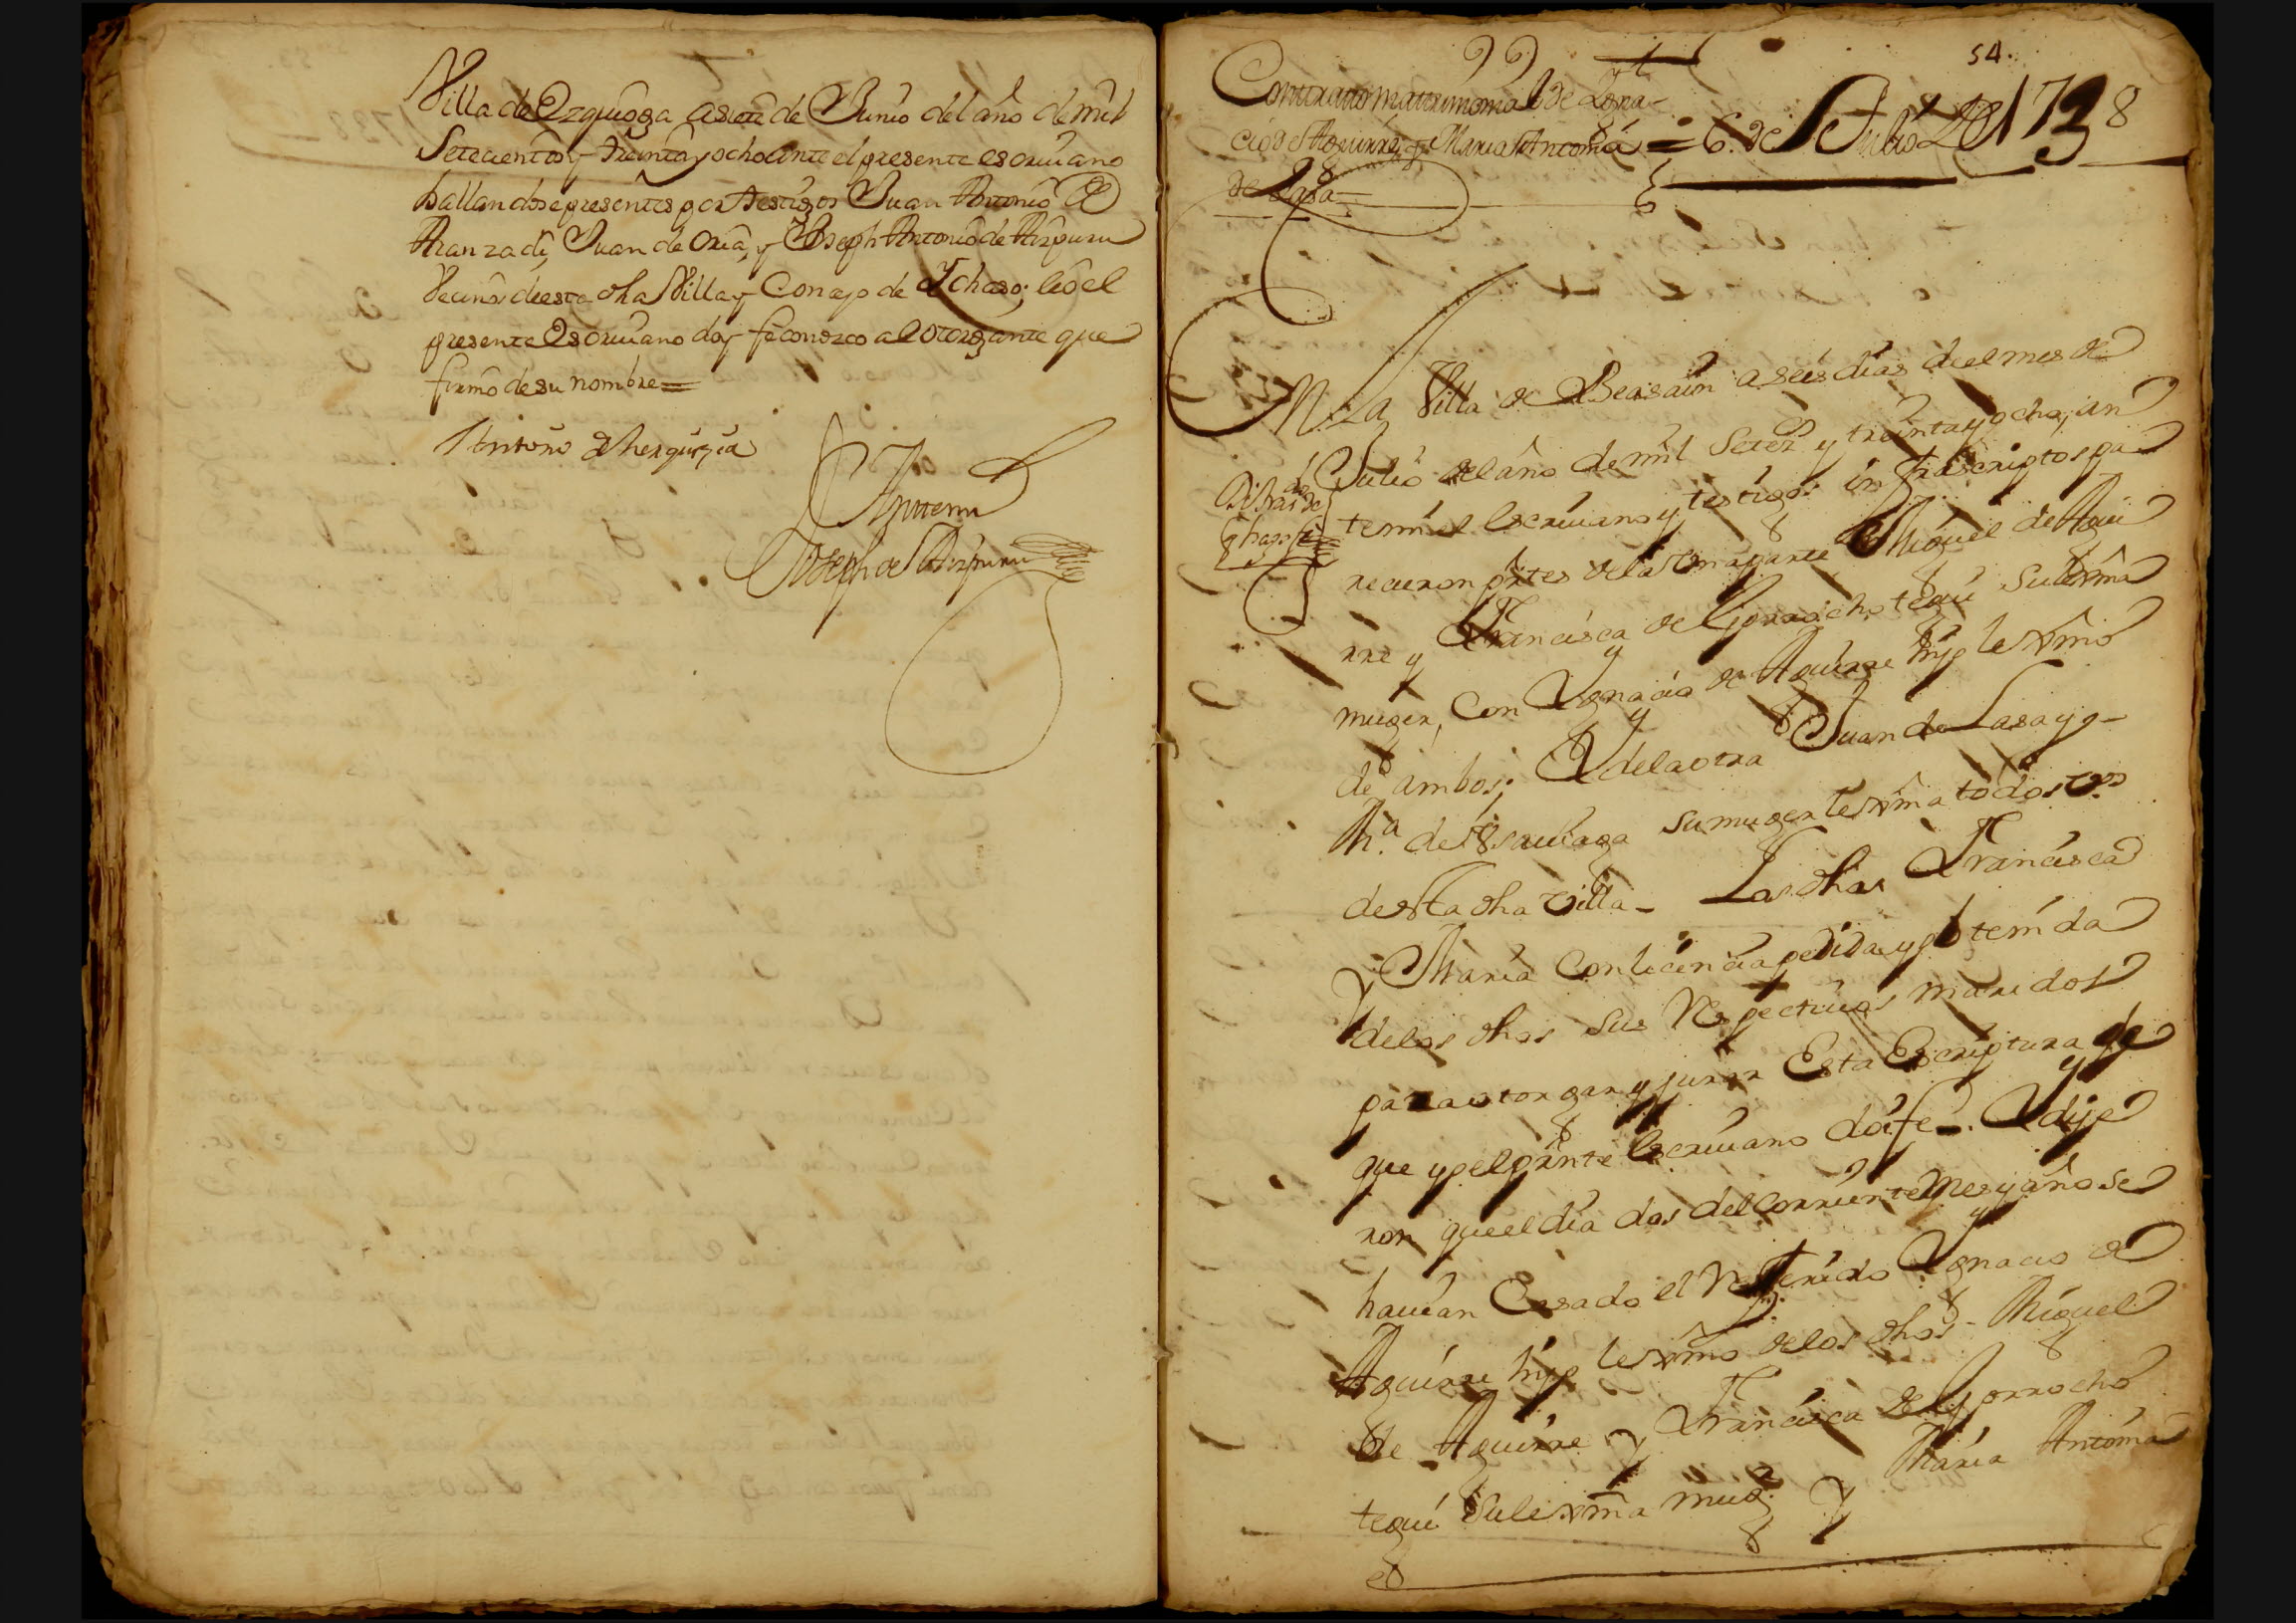 Villa de Ezquioga a siete de Junio del año de mil
Setecientos y treinta y ocho ante el presente escriuano
hallandose presentes por testigos Juan Antonio de
Aranzadi, Juan de Oria, y Joseph Antonio de Aizpuru
Vecinos desta dha Villa y Conzejo de Ychaso; e yo el
presente Escriuano doy fe conozco al otorgante que
firmo de su nombre=
Antonio de
Ante mi
Joseph de Aizpuru
54.
Contratto matrimonial de Ygna-
cio de Aguirre, y Maria Antonia = 6. de Julio de 1738
de Lasa=
En La Villa de Beasain a seis dias de el mes de
Julio del año de mil setez.s y treinta y ocho, an
te mi el escriuano y testigos infrascriptos pa
recieron pntes de la una parte Miguel de Agui
rre y Francisca de Gorrochotegui su lexma
muger, Con Ygnacio de Aguirre hijo lexmo
de ambos; Y de la otra Juan de Lasa y
M.a de Ysauiaga su muger lexma todos vos
desta dha villa- Las dhas Francisca
Y Maria Con licencia pedida y obtenida
de los dhos sus Respectiuos maridos
para otorgar y jurar Esta Escriptura de
que yo el prnte Escriuano doi fe-. Y dije
ron que el dia dos del corriente Mes y año se
hauian Casado el Referido Ygnacio de
Aguirre hijo lexmo de los dhos- Miguel
de Aguirre Y Francisca de Gorrocho
tegui su lexma mug.r Y Maria Antonia